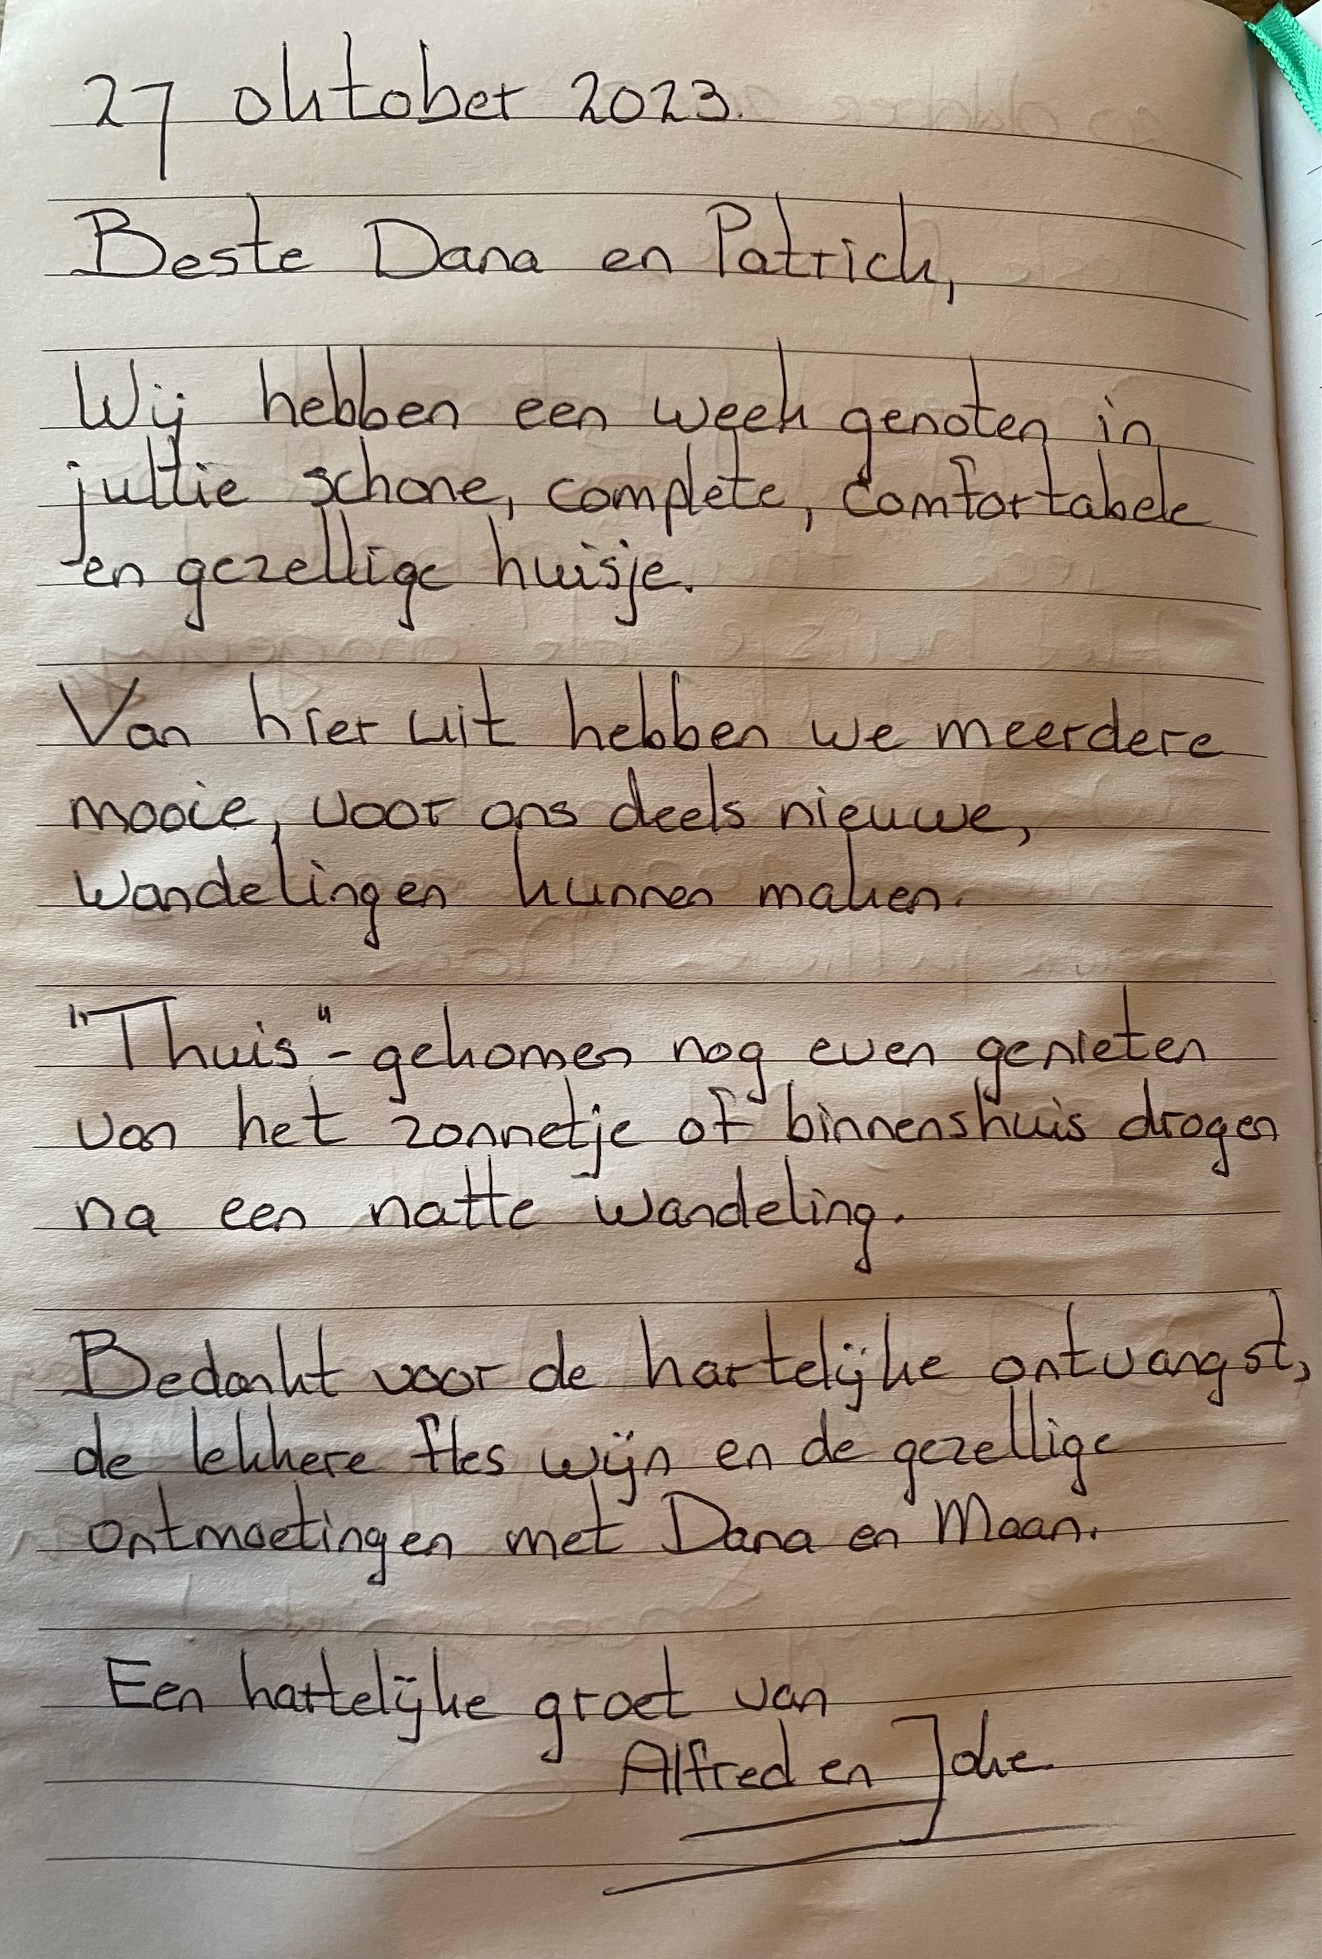 27 oktober 2023.
Beste Dana en Patrick,
Wij hebben een week genoten in
jullie schone, complete, comfortabele
en gezellige huisje.
Van hier uit hebben we meerdere
mooie, voor ons deels nieuwe,
wandelingen kunnen maken.
"Thuis"-gekomen nog even genieten
van het zonnetje of binnenshuis drogen
na een natte wandeling.
Bedankt voor de hartelijke ontvangst,
de lekkere fles wijn en de gezellige
ontmoetingen met Dana en Maan.
Een hartelijke groet van
Alfred en Joke